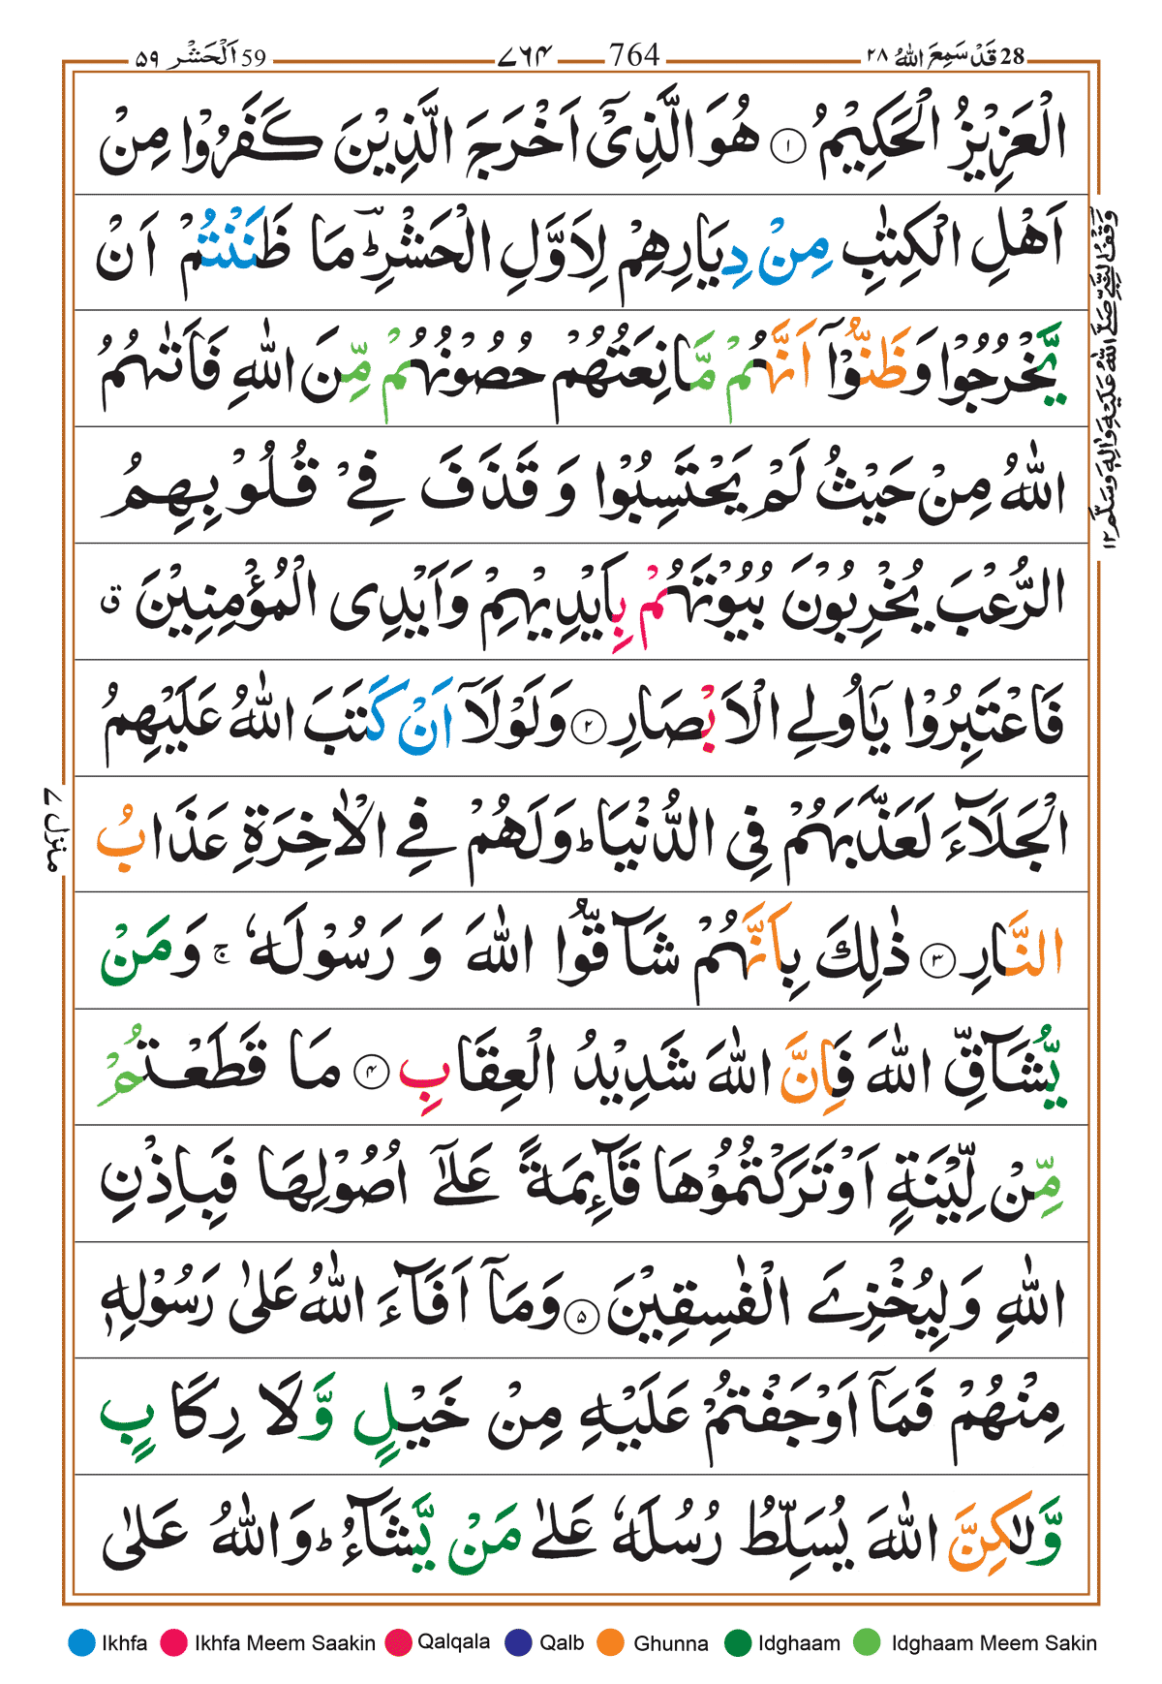 28 قَدْ سَمِعَ اللهُ ٢٨ 764 ٧٦۴ 59 اَلْحَشْر ٥٩
الْعَزِيْزُ الْحَكِيْمُ ١ هُوَ الَّذِيْٓ اَخْرَجَ الَّذِيْنَ كَفَرُوْا مِنْ
اَهْلِ الْكِتٰبِ مِنْ دِيَارِهِمْ لِاَوَّلِ الْحَشْرِؔؕ مَا ظَنَنْتُمْ اَنْ
يَّخْرُجُوْا وَظَنُّوْٓا اَنَّهُمْ مَّانِعَتُهُمْ حُصُوْنُهُمْ مِّنَ اللهِ فَاَتٰىهُمُ
اللهُ مِنْ حَيْثُ لَمْ يَحْتَسِبُوْا وَقَذَفَ فِيْ قُلُوْبِهِمُ
الرُّعْبَ يُخْرِبُوْنَ بُيُوْتَهُمْ بِاَيْدِيْهِمْ وَاَيْدِى الْمُؤْمِنِيْنَ ق
فَاعْتَبِرُوْا يٰٓاُولِي الْاَبْصَارِ ٢ وَلَوْلَآ اَنْ كَتَبَ اللهُ عَلَيْهِمُ
الْجَلَآءَ لَعَذَّبَهُمْ فِى الدُّنْيَاؕ وَلَهُمْ فِي الْاٰخِرَةِ عَذَابُ
النَّارِ ٣ ذٰلِكَ بِاَنَّهُمْ شَآقُّوا اللهَ وَرَسُوْلَهٗ ۚ وَمَنْ
يُّشَآقِّ اللهَ فَاِنَّ اللهَ شَدِيْدُ الْعِقَابِ ۴ مَا قَطَعْتُمْ
مِّنْ لِّيْنَةٍ اَوْ تَرَكْتُمُوْهَا قَآئِمَةً عَلٰٓى اُصُوْلِهَا فَبِاِذْنِ
اللهِ وَلِيُخْزِيَ الْفٰسِقِيْنَ ۵ وَمَآ اَفَآءَ اللهُ عَلٰى رَسُوْلِهٖ
مِنْهُمْ فَمَآ اَوْجَفْتُمْ عَلَيْهِ مِنْ خَيْلٍ وَّلَا رِكَابٍ
وَّلٰكِنَّ اللهَ يُسَلِّطُ رُسُلَهٗ عَلٰى مَنْ يَّشَآءُؕ وَاللهُ عَلٰى
وَقْفُ النَّبِيِّ صَلَّى اللهُ عَلَيْهِ وَاٰلِهٖ وَسَلَّمَ ١٢
منزل ٧
Ikhfa Ikhfa Meem Saakin Qalqala Qalb Ghunna Idghaam Idghaam Meem Sakin